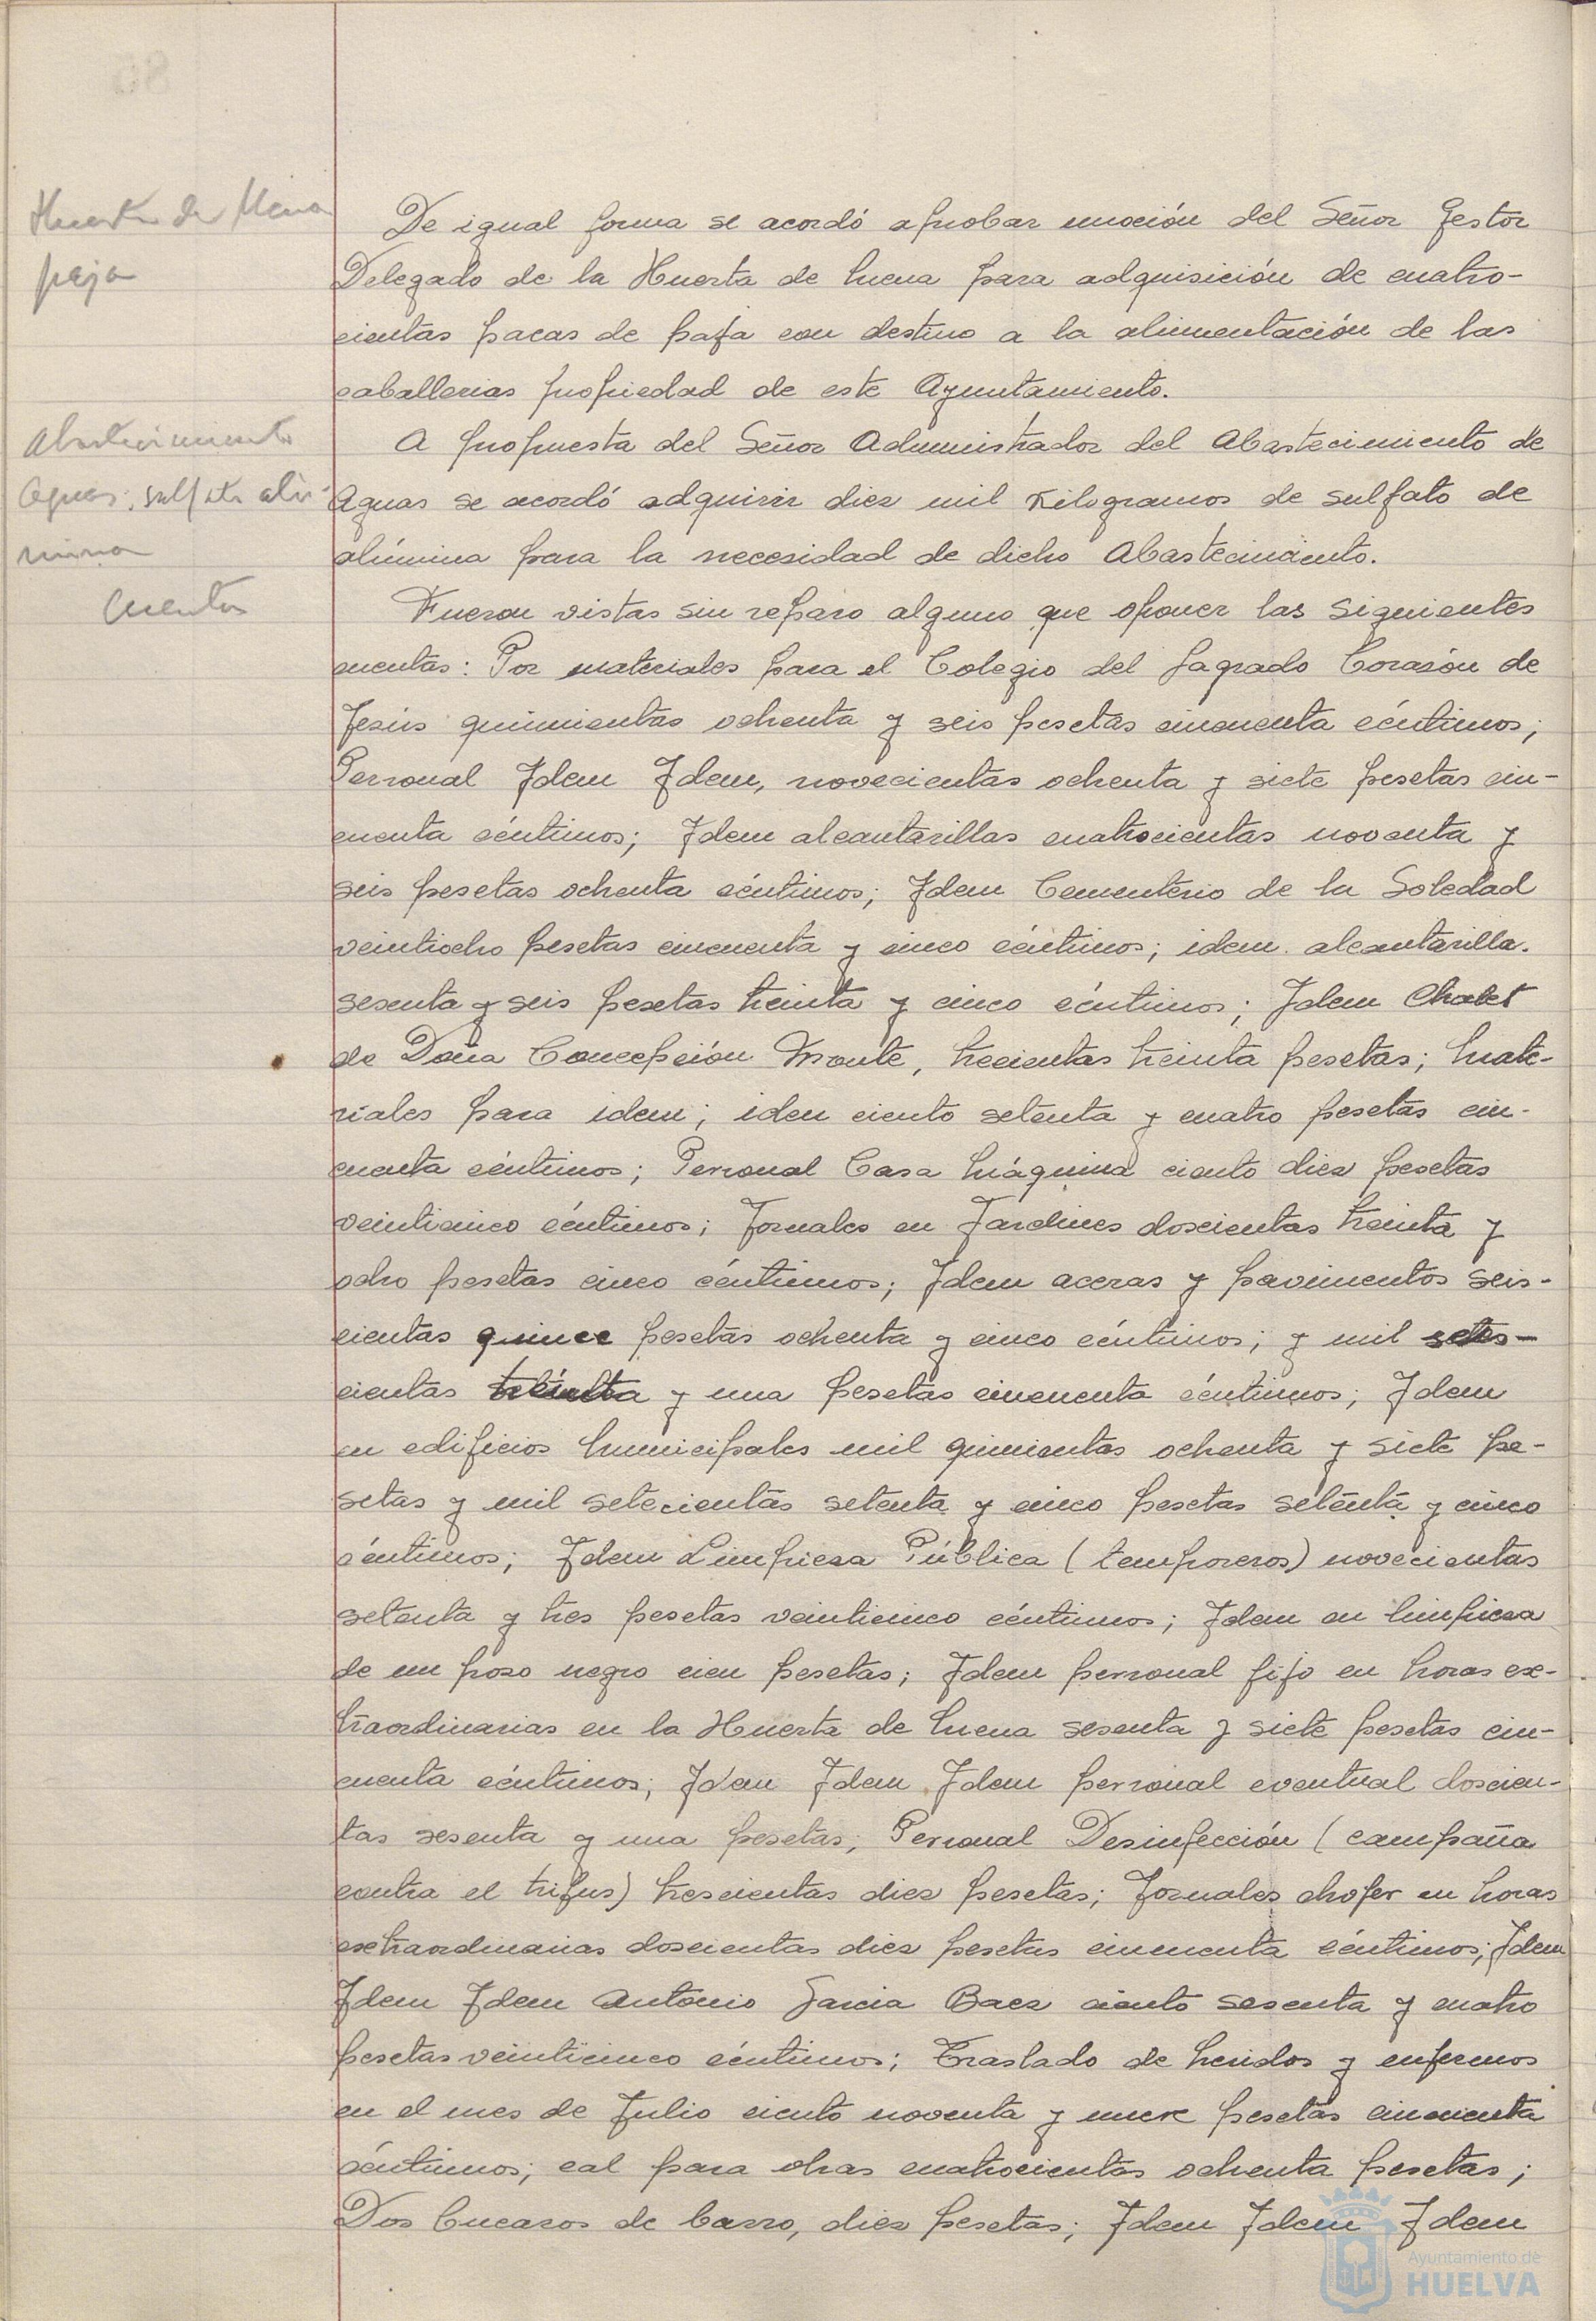 Huerta de Mena
paja
De igual forma se acordó aprobar moción del Señor Gestor
Delegado de la Huerta de Mena para adquisición de cuatro-
cientas pacas de paja con destino a la alimentación de las
caballerias propiedad de este Ayuntamiento.
Abastecimiento
Aguas, sulfato alu-
mina
A propuesta del Señor Administrador del Abastecimiento de
Aguas se acordó adquirir diez mil Kilogramos de sulfato de
alúmina para la necesidad de dicho Abastecimiento.
Cuentas
Fueron vistas sin reparo alguno que oponer las siguientes
cuentas: Por materiales para el Colegio del Sagrado Corazón de
Jesús quinientas ochenta y seis pesetas cincuenta céntimos;
Personal Idem Idem, novecientas ochenta y siete pesetas cin-
cuenta céntimos; Idem alcantarillas cuatrocientas noventa y
seis pesetas ochenta céntimos; Idem Cementerio de la Soledad
veintiocho pesetas cincuenta y cinco céntimos; idem. alcantarilla.
sesenta y seis pesetas treinta y cinco céntimos; Idem Chalet
de Doña Concepción Monte, trecientas treinta pesetas; Mate-
riales para idem; iden ciento setenta y cuatro pesetas cin-
cuenta céntimos; Personal Casa Máquina ciento diez pesetas
veinticinco céntimos; Jornales en Jardines doscientas treinta y
ocho pesetas cinco céntimos; Idem aceras y pavimentos seis-
cientas quince pesetas ochenta y cinco céntimos; y mil setes-
cientas treinta y una pesetas cincuenta céntimos; Idem
en edificios Municipales mil quinientas ochenta y siete pe-
setas y mil setecientas setenta y cinco pesetas setenta y cinco
céntimos; Idem Limpieza Pública (temporeros) novecientas
setenta y tres pesetas veinticinco céntimos; Idem en limpieza
de un pozo negro cien pesetas; Idem personal fijo en horas ex-
traordinarias en la Huerta de Mena sesenta y siete pesetas cin-
cuenta céntimos; Idem Idem Idem personal eventual doscien-
tas sesenta y una pesetas; Personal Desinfección (campaña
contra el trifus) trescientas diez pesetas; Jornales chofer en horas
extraordinarias doscientas diez pesetas cincuenta céntimos; Idem
Idem Idem Antonio Garcia Baez ciento sesenta y cuatro
pesetas veinticinco céntimos; Traslado de heridos y enfermos
en el mes de Julio ciento noventa y nueve pesetas cincuenta
céntimos; cal para obras cuatrocientas ochenta pesetas;
Dos bucaros de barro, diez pesetas; Idem Idem Idem
Ayuntamiento de
HUELVA